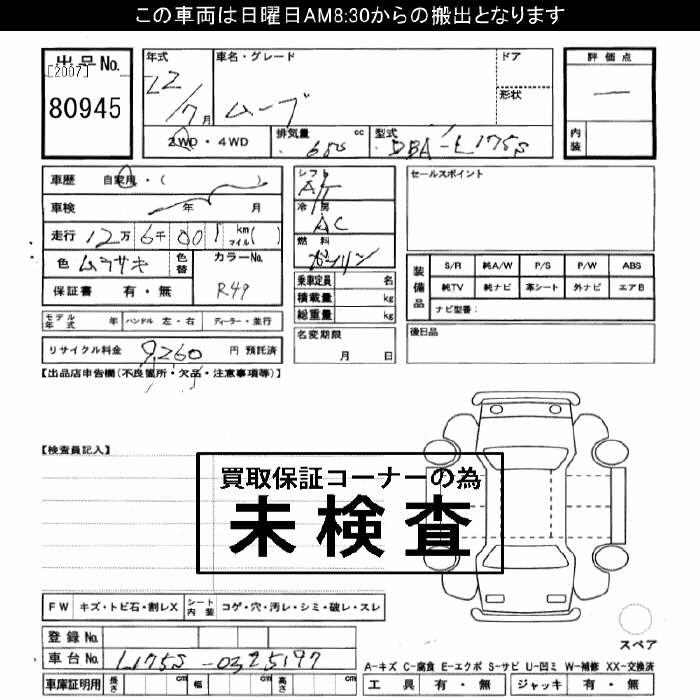 この車両は日曜日AM8:30からの搬出となります
出品No.
[2007]
80945
年式
22/7月
車名・グレード
ムーブ
ドア
形状
評価点
ー
内装
2WD・4WD
排気量 cc
650
型式
DBA-L175S
車歴 自家用・( )
車検 年 月
走行 12万6千001 km マイル( )
色 ムラサキ 色替
カラーNo.
R49
保証書 有・無
シフト
AT
冷房
AC
燃料
ガソリン
乗車定員 名
積載量 kg
総重量 kg
セールスポイント
装備品
S/R 純A/W P/S P/W ABS
純TV 純ナビ 革シート 外ナビ エアB
ナビ型番:
モデル年式 年 ハンドル 左・右 ディーラー・並行
名変期限
月 日
後日品
リサイクル料金 9,260 円 預託済
【出品店申告欄(不良箇所・欠品・注意事項等)】
【検査員記入】
買取保証コーナーの為
未検査
FW キズ・トビ石・割レX シート内装 コゲ・穴・汚レ・シミ・破レ・スレ
登録No.
車台No. L175S-0325197
車庫証明用 長さ cm 幅 cm 高さ cm
スペア
A-キズ C-腐食 E-エクボ S-サビ U-凹ミ W-補修 XX-交換済
工具 有・無 ジャッキ 有・無